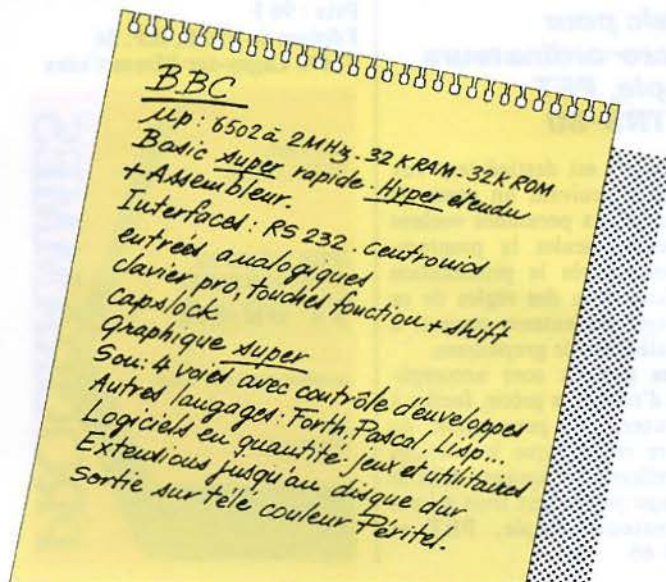 BBC
µp: 6502 à 2MHz. 32K RAM - 32K ROM
Basic super rapide. Hyper étendu
+ Assembleur.
Interfaces: RS 232. Centronics
entrées analogiques
clavier pro, touches fonction + shift
capslock
Graphique super
Son: 4 voies avec contrôle d'enveloppes
Autres langages: Forth, Pascal, Lisp...
Logiciels en quantité. jeux et utilitaires
Extensions jusqu'au disque dur
Sortie sur télé couleur Péritel.